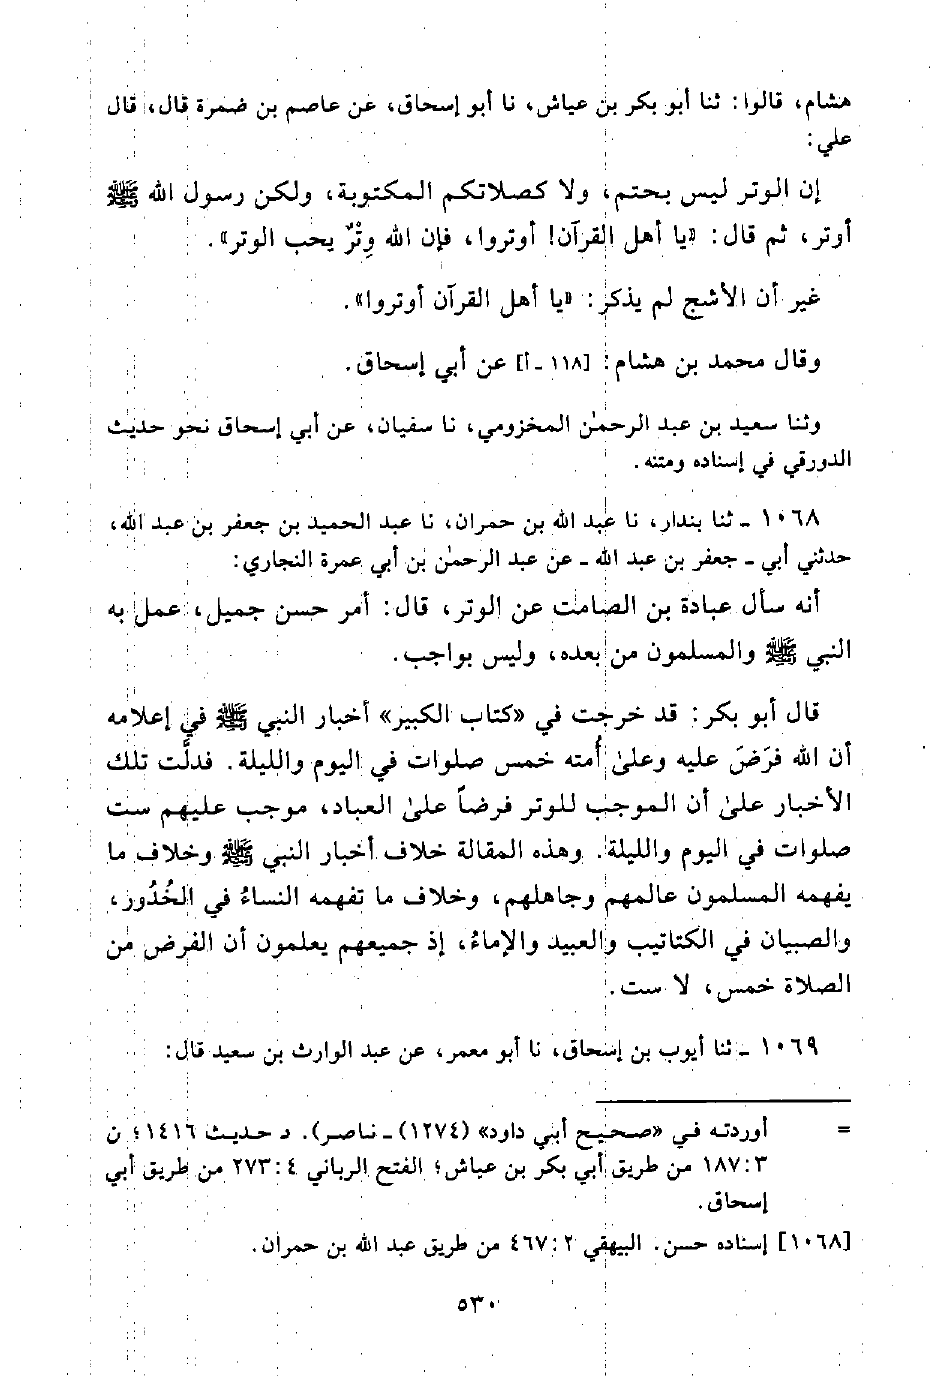 هشام، قالوا: ثنا أبو بكر بن عياش، نا أبو إسحاق، عن عاصم بن ضمرة قال، قال
علي:
إن الوتر ليس بحتم، ولا كصلاتكم المكتوبة، ولكن رسول الله ﷺ
أوتر، ثم قال: «يا أهل القرآن! أوتروا، فإن الله وِتْرٌ يحب الوتر».
غير أن الأشج لم يذكر: «يا أهل القرآن أوتروا».
وقال محمد بن هشام: [١١٨ - أ] عن أبي إسحاق.
وثنا سعيد بن عبد الرحمٰن المخزومي، نا سفيان، عن أبي إسحاق نحو حديث
الدورقي في إسناده ومتنه.
١٠٦٨ - ثنا بندار، نا عبد الله بن حمران، نا عبد الحميد بن جعفر بن عبد الله،
حدثني أبي - جعفر بن عبد الله - عن عبد الرحمٰن بن أبي عمرة النجاري:
أنه سأل عبادة بن الصامت عن الوتر، قال: أمر حسن جميل، عمل به
النبي ﷺ والمسلمون من بعده، وليس بواجب.
قال أبو بكر: قد خرجت في «كتاب الكبير» أخبار النبي ﷺ في إعلامه
أن الله فرَضَ عليه وعلىٰ أُمته خمس صلوات في اليوم والليلة. فدلَّت تلك
الأخبار علىٰ أن الموجب للوتر فرضاً علىٰ العباد، موجب عليهم ست
صلوات في اليوم والليلة. وهذه المقالة خلاف أخبار النبي ﷺ وخلاف ما
يفهمه المسلمون عالمهم وجاهلهم، وخلاف ما تفهمه النساءُ في الخُدُور،
والصبيان في الكتاتيب والعبيد والإماءُ، إذ جميعهم يعلمون أن الفرض من
الصلاة خمس، لا ست.
١٠٦٩ - ثنا أيوب بن إسحاق، نا أبو معمر، عن عبد الوارث بن سعيد قال:
= أوردته في «صحيح أبي داود» (١٢٧٤) - ناصر). د حديث ١٤١٦؛ ن
٣: ١٨٧ من طريق أبي بكر بن عياش؛ الفتح الرباني ٤: ٢٧٣ من طريق أبي
إسحاق.
[١٠٦٨] إسناده حسن. البيهقي ٢: ٤٦٧ من طريق عبد الله بن حمران.
٥٣٠